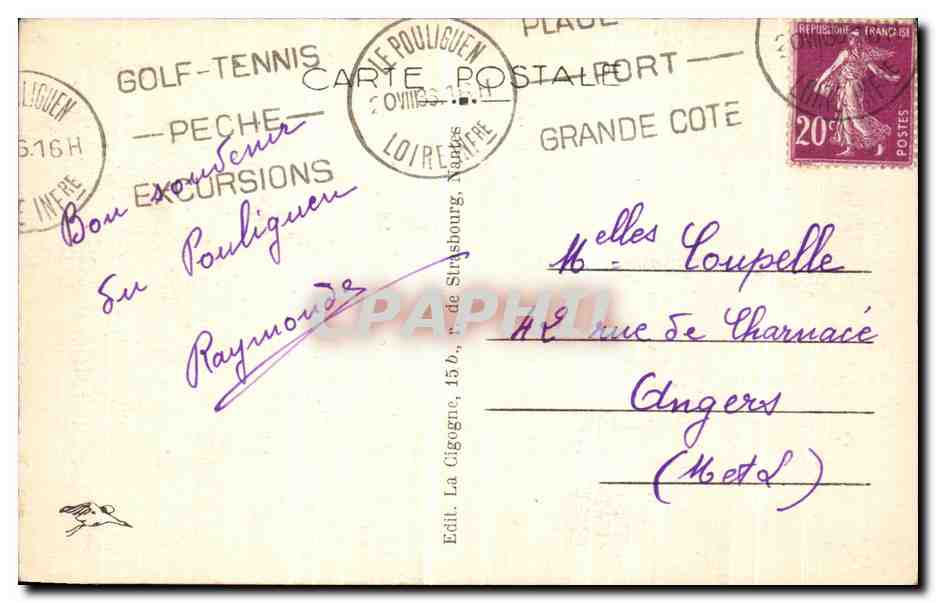 GOLF-TENNIS
—PECHE—
EXCURSIONS
LE POULIGUEN
LOIRE INFRE
PLAGE
—PORT—
GRANDE COTE
CARTE POSTALE
REPUBLIQUE FRANÇAISE
20c
POSTES
OULIGUEN
6.16H
E INFRE
Bon souvenir
du Pouliguen
Raymonde
Edit. La Cigogne, 15 b., r. de Strasbourg, Nantes
Melles Coupelle
42 rue de Charnacé
Angers
(M et L)
CPAPHIL